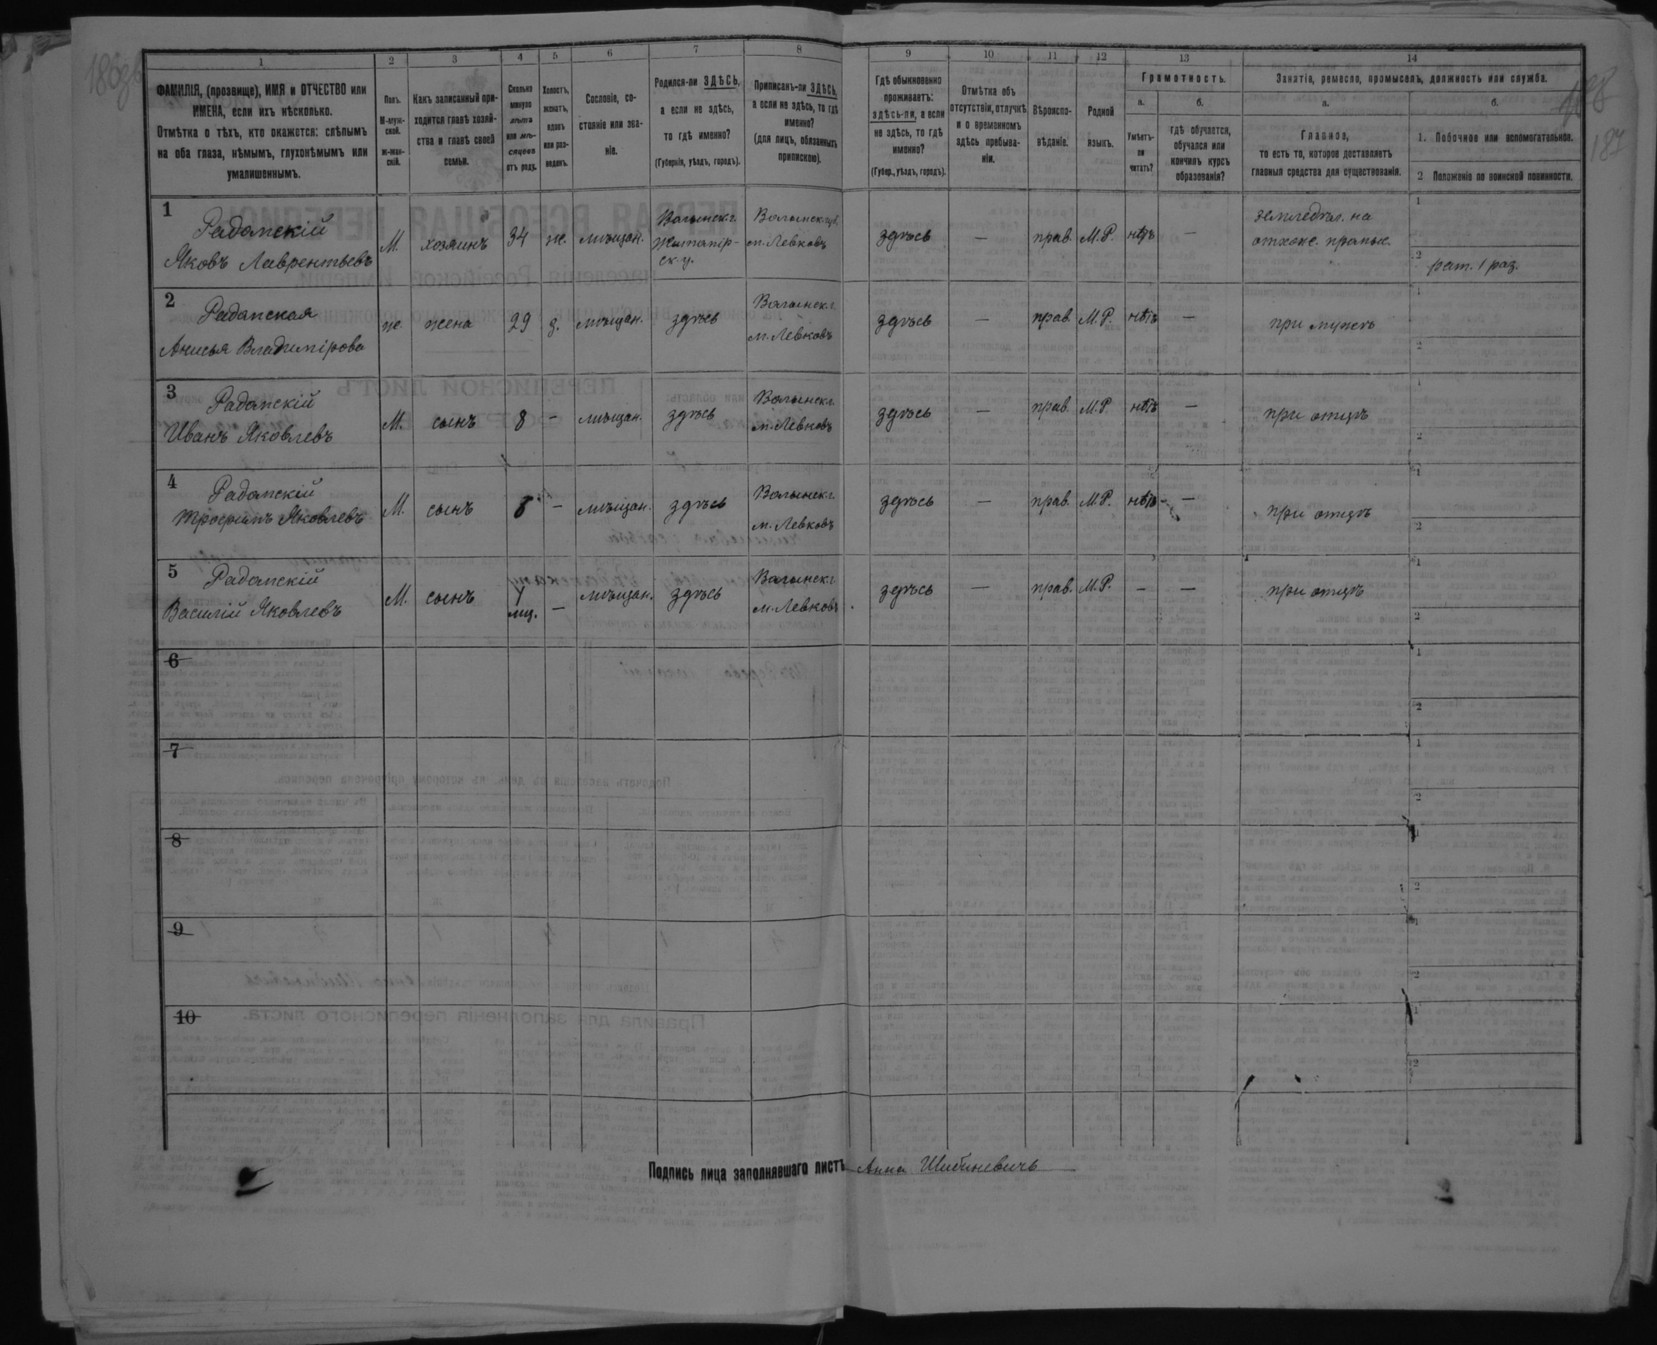 1
2
3
4
5
6
7
8
ФАМИЛІЯ, (прозвище), ИМЯ и ОТЧЕСТВО или
ИМЕНА, если ихъ нѣсколько.
Отмѣтка о тѣхъ, кто окажется: слѣпымъ
на оба глаза, нѣмымъ, глухонѣмымъ или
умалишеннымъ.
Полъ.
М-муж-
ской.
ж-жен-
скій.
Какъ записанный при-
ходится главѣ хозяй-
ства и главѣ своей
семьи.
Сколько
минуло
лѣтъ
или мѣ-
сяцевъ
отъ роду.
Холостъ,
женатъ,
вдовъ
или раз-
веденъ.
Сословіе, со-
стояніе или зва-
ніе.
Родился-ли ЗДѢСЬ,
а если не здѣсь,
то гдѣ именно?
(Губернія, уѣздъ, городъ).
Приписанъ-ли ЗДѢСЬ,
а если не здѣсь, то гдѣ
именно?
(для лицъ, обязанныхъ
припискою).
9
10
11
12
13
14
Гдѣ обыкновенно
проживаетъ:
здѣсь-ли, а если
не здѣсь, то гдѣ
именно?
(Губер., уѣздъ, городъ).
Отмѣтка объ
отсутствіи, отлучкѣ
и о временномъ
здѣсь пребыва-
ніи.
Вѣроиспо-
вѣданіе.
Родной
языкъ.
Грамотность.
а.
Умѣетъ-
ли
читать?
б.
гдѣ обучается,
обучался или
кончилъ курсъ
образованія?
Занятіе, ремесло, промыселъ, должность или служба.
а.
Главное,
то есть то, которое доставляетъ
главныя средства для существованія.
б.
1. Побочное или вспомогательное.
2 Положеніе по воинской повинности.
187
1
Радомскій
Яковъ Лаврентьевъ
М.
хозяинъ
34
же.
мѣщан.
Волынск. г.
Житомір-
ск. у.
Волынск. губ.
м. Левковъ
здѣсь
—
прав.
М.Р.
нѣтъ
—
1
2
рат. 1 раз.
2
Радомская
Анисья Владимірова
же.
жена
29
з.
мѣщан.
здѣсь
Волынск. г.
м. Левковъ
здѣсь
—
прав.
М.Р.
нѣтъ
—
при мужѣ
1
2
3
Радомскій
Иванъ Яковлевъ
М.
сынъ
8
—
мѣщан.
здѣсь
Волынск. г.
м. Левковъ
здѣсь
—
прав.
М.Р.
нѣтъ
—
при отцѣ
1
2
4
Радомскій
Трофимъ Яковлевъ
М.
сынъ
—
мѣщан.
здѣсь
Волынск. г.
м. Левковъ
здѣсь
—
прав.
М.Р.
нѣтъ
—
при отцѣ
1
2
5
Радомскій
Василій Яковлевъ
М.
сынъ
мц.
—
мѣщан.
здѣсь
Волынск. г.
м. Левковъ
здѣсь
—
прав.
М.Р.
—
—
при отцѣ
1
2
6
1
2
7
1
2
8
1
2
9
1
2
10
1
2
Подпись лица заполнявшаго листъ Анна Шибиневичъ